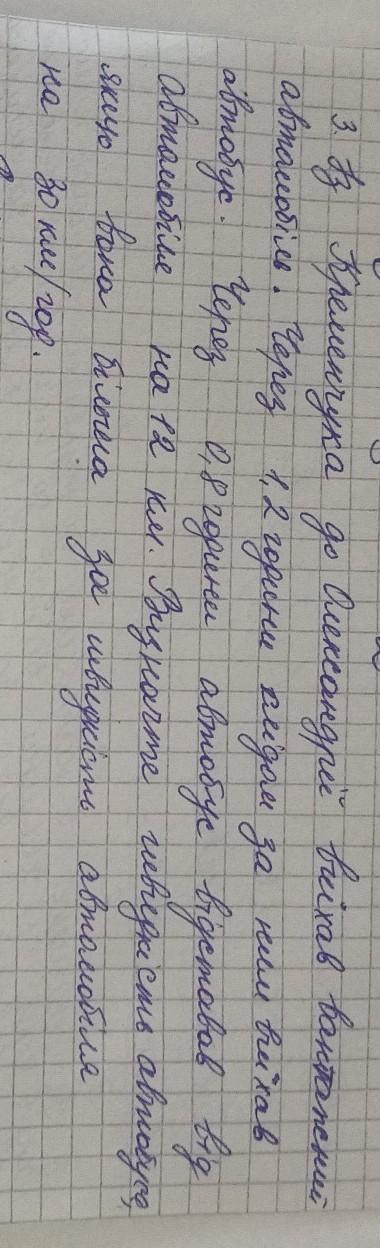 3. Із Кременчука до Олександрії виїхав вантажний
автомобіль. Через 1,2 години слідом за ним виїхав
автобус. Через 0,8 години автобус відставав від
автомобіля на 12 км. Визначте швидкість автобуса,
якщо вона більша за швидкість автомобіля
на 30 км/год.